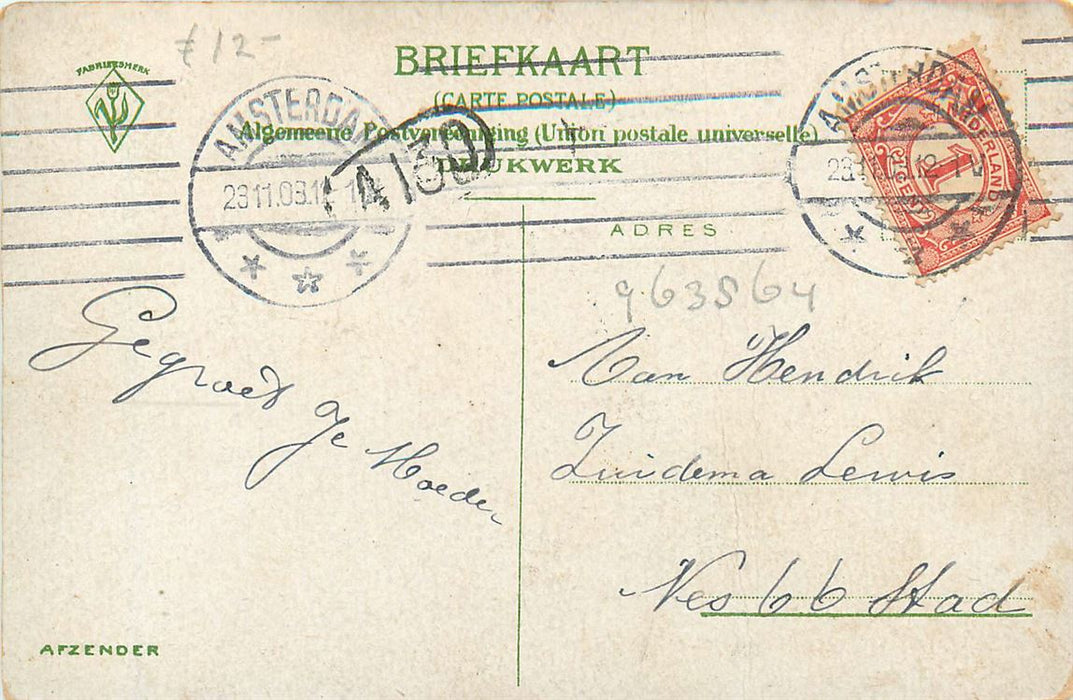 €12-
FABRIEKSMERK
BRIEFKAART
(CARTE POSTALE)
Algemeene Postvereeniging (Union postale universelle)
DRUKWERK
AMSTERDAM
23.11.08.
AMSTERDAM
NEDERLAND
1
CENT
ADRES
963564
Gegroet
Je Moeder
Aan Hendrik
Zuidema Lewis
Nes 66 Stad
AFZENDER